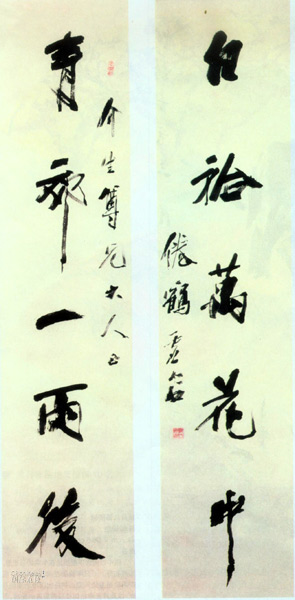 紅袷萬花中
倦鶴
青郊一雨後
介生尊兄大人正